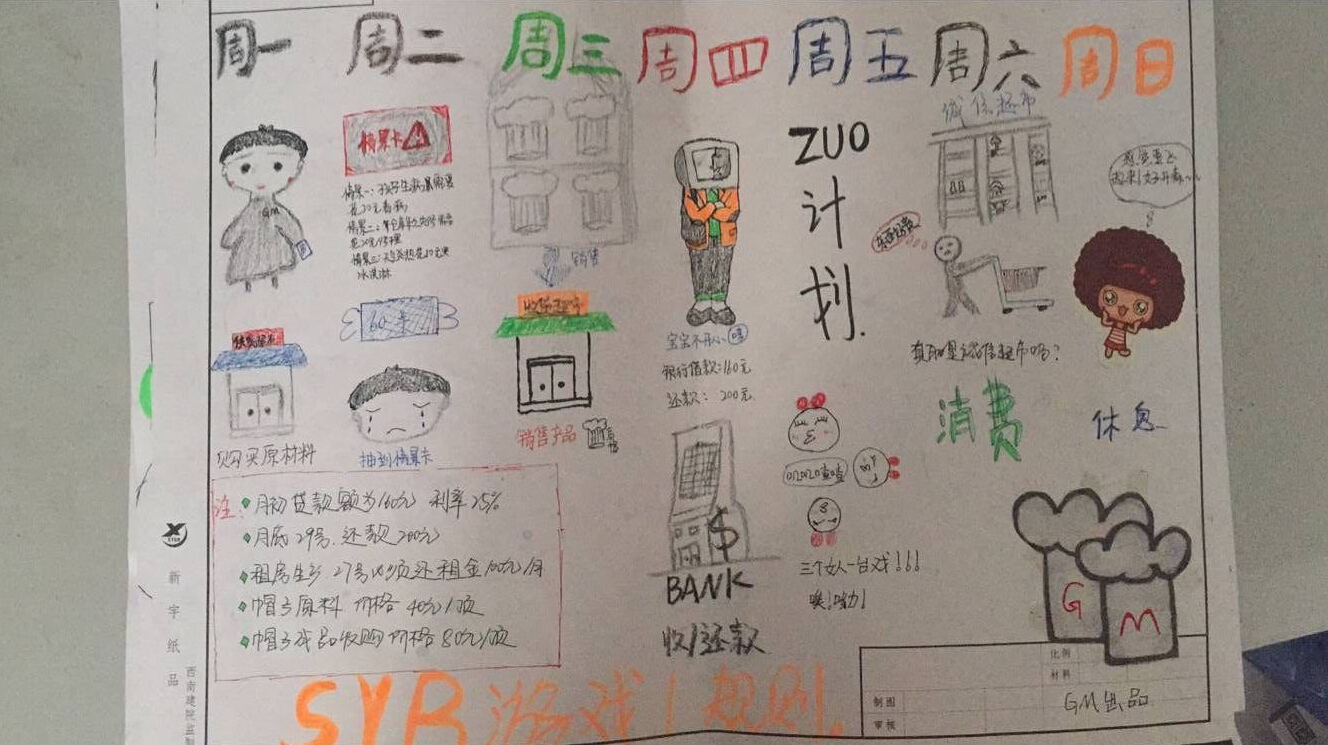 周一
周二
周三
周四
周五
周六
周日
情景卡
情景一:孩子生病需要
花20元看病
冰淇淋
60元
抽到情景卡
GM
购买原材料
销售
销售产品
宝宝不开心
银行借款:160元
还款: 200元
BANK
$
收/还款
ZUO
计
划.
三个女人一台戏!!!
诚信超市
真的是诚信超市吗?
消费
休息
注:
月初贷款额为160元 利率25%
月底29号.还款200元
租房生产 27号必须还租金100元/月
帽子原料 价格 40元/顶
帽子成品收购价格 80元/顶
SYB游戏规则
G
M
GM出品
比例
材料
制图
审核
新宇纸品